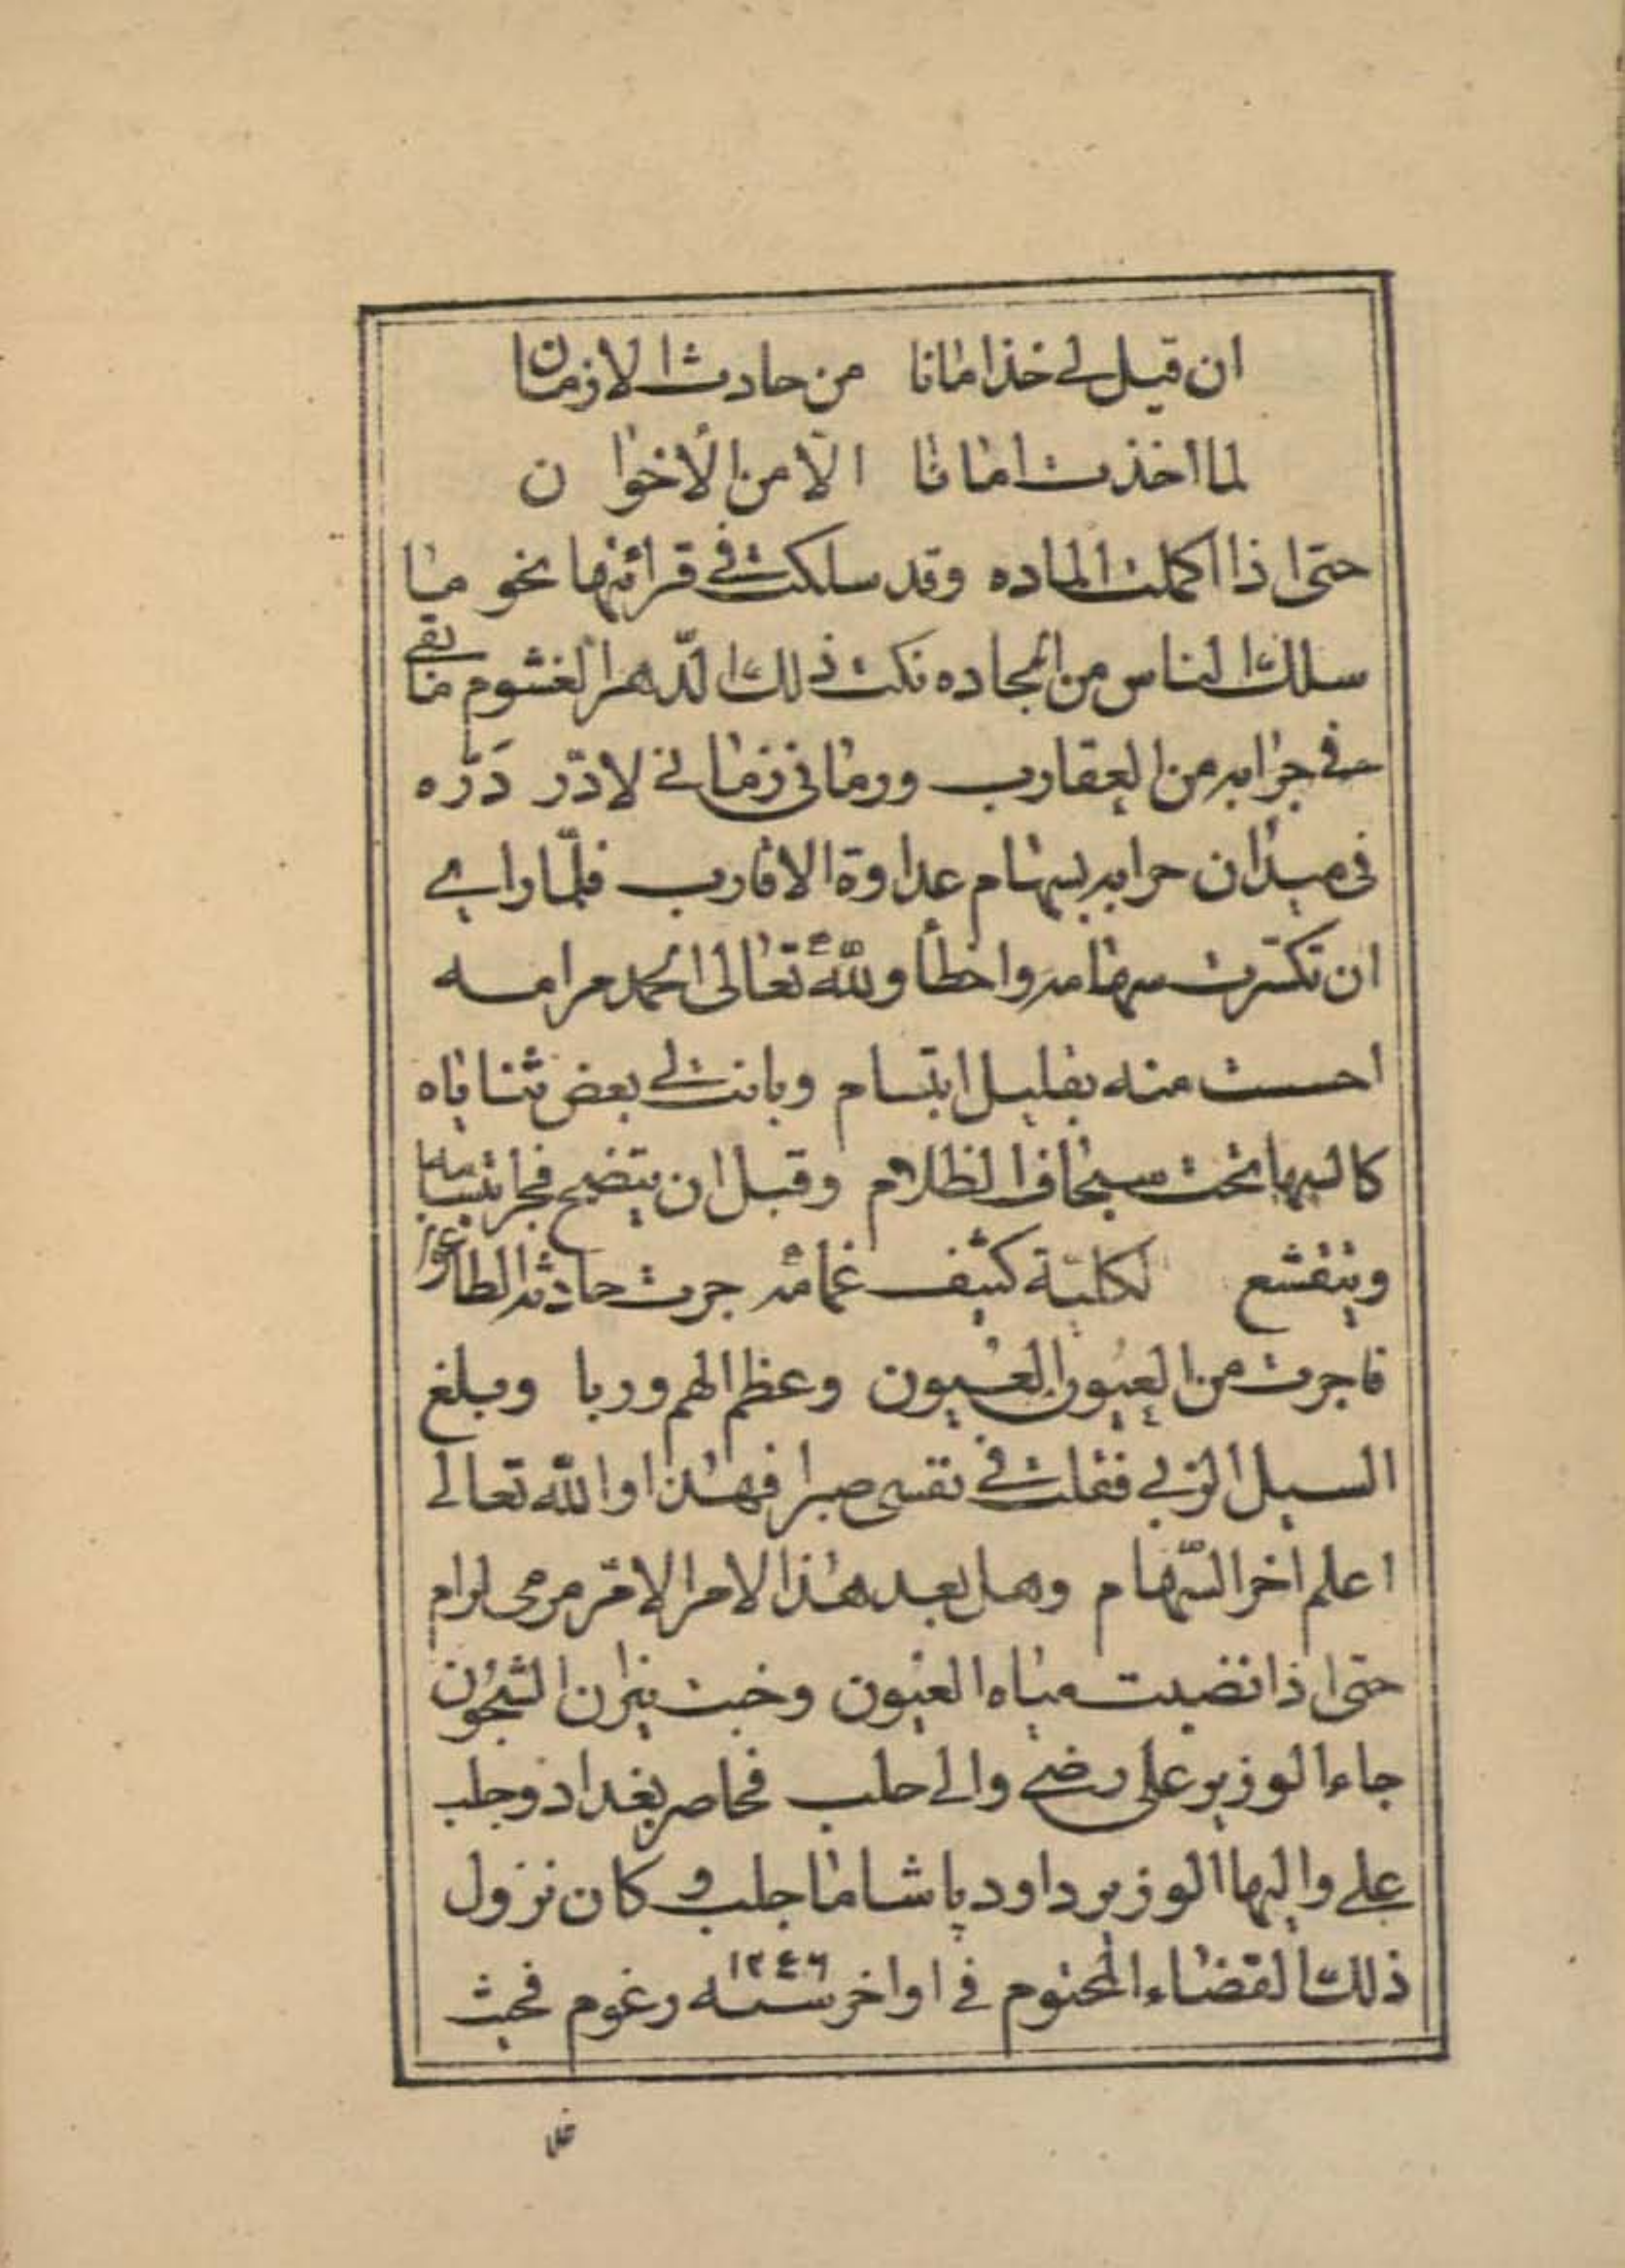 ان قيل لي خذ امانا من حادث الازمان
لما اخذت امانا الّا من الأخوان
حتى اذا اكملت الماده وقد سلكت في قرائتها نحو ما
سلك الناس من الجاده نكث ذلك الدّهر الغشوم ما بقى
في جرابه من العقارب ورماني زماني لا درّ دَرّه
في ميدان حرابه بسهام عداوة الاقارب فلمّا رأى
ان تكسّرت سهامه واخطأ ولله تعالى الحمد مرامه
احست منه بقليل ابتسام وبانت لي بعض ثناياه
كالسها تحت سجاف الظلام وقبل ان يتضح فجر ابتسامه
وينقشع لكليّة كثيف غمامه جرت حادثة الطاعون
فاجرت من العيون العيون وعظم الهم وربا وبلغ
السيل الزبى فقلت في نفسي صبرا فهذا والله تعالى
اعلم اخر السّهام وهل بعد هذا الامر الامّر مرمى لرام
حتى اذا نضبت مياه العيون وخبت نيران الشجون
جاء الوزير على رضي والي حلب فحاصر بغداد وجلب
على واليها الوزير داود پاشا ما جلب وكان نزول
ذلك القضاء المحتوم في اواخر سنه ١٢٤٦ رغوم فحبث